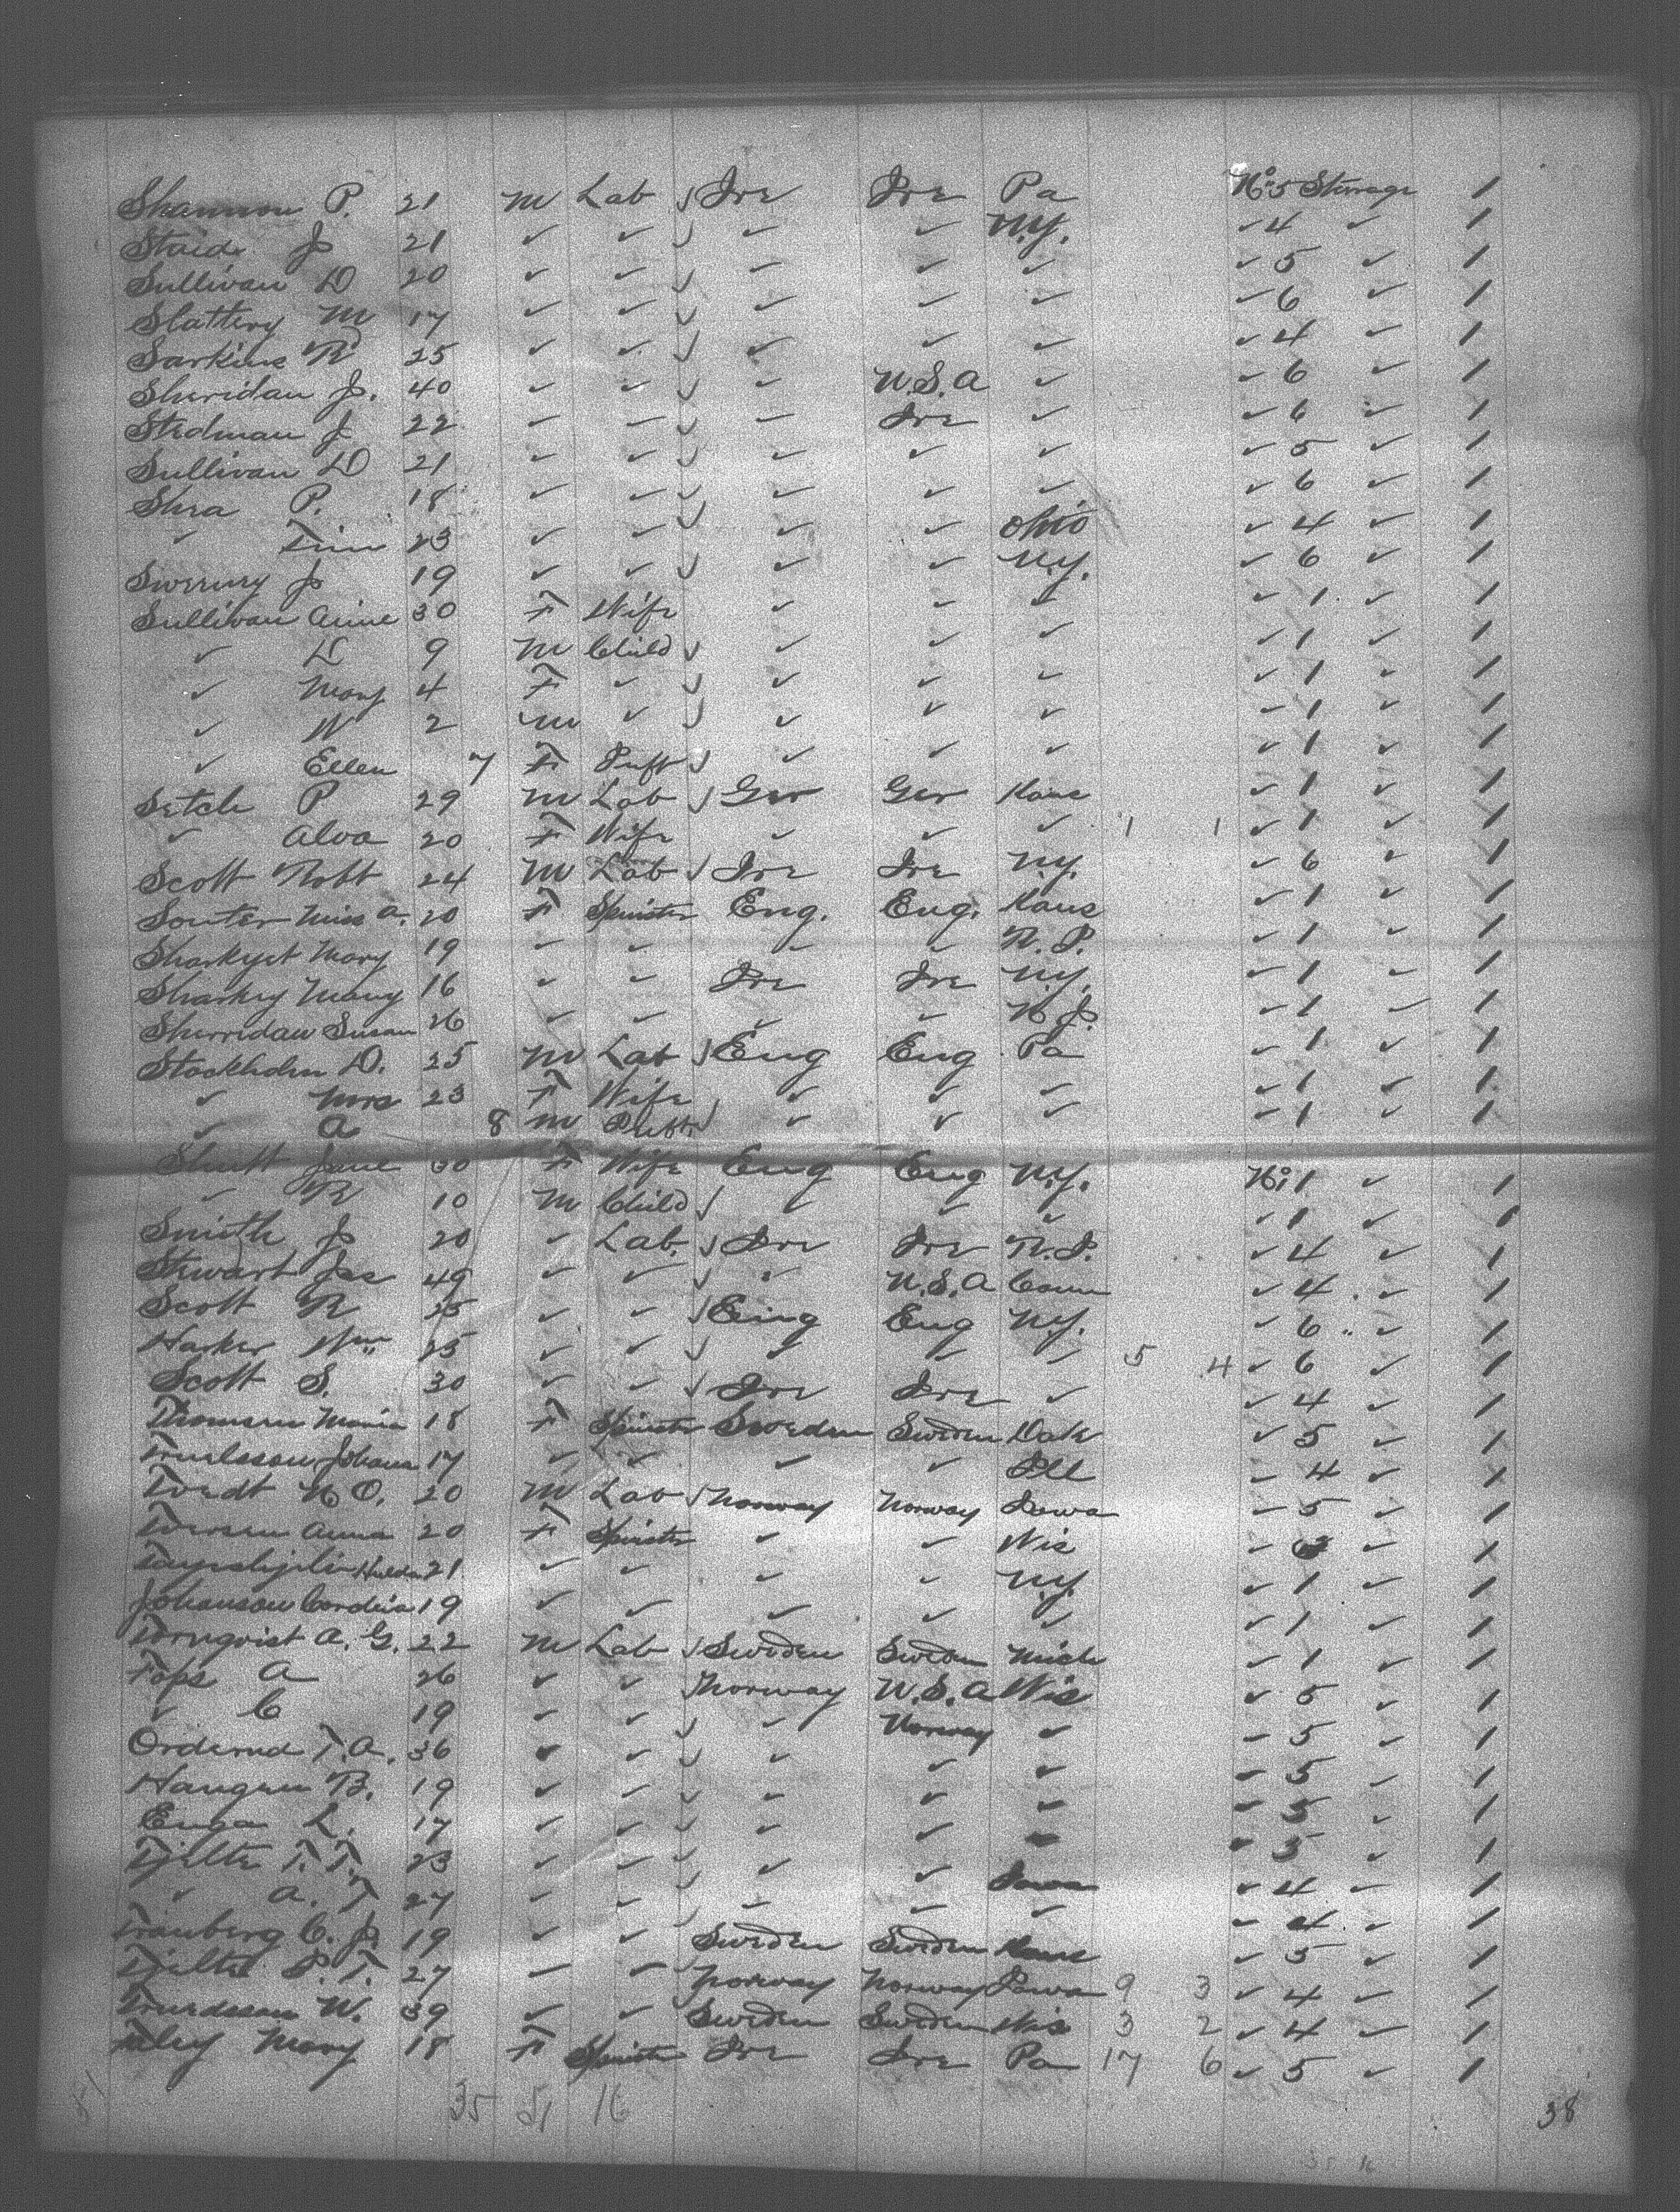 Shannon P. 21 M Lab √ Ire Ire Pa No 5 Steerage 1
Staid J 21 ✓ ✓ √ ✓ ✓ N.Y. ✓ 4 ✓ 1
Sullivan D 20 ✓ ✓ √ ✓ ✓ ✓ ✓ 5 ✓ 1
Slattery M 17 ✓ ✓ √ ✓ ✓ ✓ ✓ 6 ✓ 1
Sarkine R 25 ✓ ✓ √ ✓ ✓ ✓ ✓ 4 ✓ 1
Sheridan J. 40 ✓ ✓ √ ✓ U.S.A ✓ ✓ 6 ✓ 1
Stedman J 22 ✓ ✓ √ ✓ Ire ✓ ✓ 6 ✓ 1
Sullivan D 21 ✓ ✓ √ ✓ ✓ ✓ ✓ 5 ✓ 1
Shea P. 18 ✓ ✓ √ ✓ ✓ ✓ ✓ 6 ✓ 1
✓ Tim 23 ✓ ✓ √ ✓ ✓ Ohio ✓ 4 ✓ 1
Sweeney J 19 ✓ ✓ √ ✓ ✓ N.Y. ✓ 6 ✓ 1
Sullivan Anne 30 F Wife ✓ ✓ ✓ ✓ 1 ✓ 1
✓ D 9 M Child √ ✓ ✓ ✓ ✓ 1 ✓ 1
✓ Mary 4 F ✓ √ ✓ ✓ ✓ ✓ 1 ✓ 1
✓ W 2 M ✓ √ ✓ ✓ ✓ ✓ 1 ✓ 1
✓ Ellen 7 F Inft √ ✓ ✓ ✓ ✓ 1 ✓ 1
Setch P 29 M Lab √ Ger Ger Kans ✓ 1 ✓ 1
✓ Alva 20 F Wife ✓ ✓ ✓ 1 1 ✓ 1 ✓ 1
Scott Robt 24 M Lab √ Ire Ire N.Y. ✓ 6 ✓ 1
Souter Miss A. 20 F Spinster Eng. Eng. Kans ✓ 1 ✓ 1
Sharkyet Mary 19 ✓ ✓ ✓ ✓ R.I. ✓ 1 ✓ 1
Sharkey Mary 16 ✓ ✓ Ire Ire N.Y. ✓ 1 ✓ 1
Sherridan Susan 26 ✓ ✓ ✓ ✓ N.J. ✓ 1 ✓ 1
Stockholm D. 25 M Lab √ Eng Eng Pa ✓ 1 ✓ 1
✓ Mrs 23 F Wife ✓ ✓ ✓ ✓ 1 ✓ 1
✓ A 8 M Inft √ ✓ ✓ ✓ ✓ 1 ✓ 1
Shutt Jane 30 F Wife Eng Eng N.Y. No 1 ✓ 1
✓ R 10 M Child √ ✓ ✓ ✓ ✓ 1 ✓ 1
Smith J 20 ✓ Lab. √ Ire Ire R.I. ✓ 4 ✓ 1
Stewart Jas 49 ✓ ✓ √ ✓ U.S.A Conn ✓ 4 ✓ 1
Scott R 25 ✓ ✓ √ Eng Eng N.Y. ✓ 6 ✓ 1
Harker Wm 25 ✓ ✓ √ ✓ ✓ ✓ 5 4 ✓ 6 ✓ 1
Scott S. 30 ✓ ✓ √ Ire Ire ✓ ✓ 4 ✓ 1
Maria 18 F Spinster Sweden Sweden Dak ✓ 5 ✓ 1
Johana 17 ✓ ✓ ✓ ✓ Ill ✓ 4 ✓ 1
Tvedt N O. 20 M Lab √ Norway Norway Iowa ✓ 5 ✓ 1
Anna 20 F Spinster ✓ ✓ Wis ✓ ✓ 1
Hulda 21 ✓ ✓ ✓ ✓ N.Y. ✓ 1 ✓ 1
Johanson Cordeia 19 ✓ ✓ ✓ ✓ ✓ ✓ 1 ✓ 1
Tornqvist A. G. 22 M Lab √ Sweden Sweden Mich ✓ 1 ✓ 1
Fops A 26 ✓ ✓ √ Norway U.S.A Wis ✓ 5 ✓ 1
✓ C 19 ✓ ✓ √ ✓ Norway ✓ ✓ 5 ✓ 1
Orderud T.A. 36 ✓ ✓ √ ✓ ✓ ✓ ✓ 5 ✓ 1
Haugen B. 19 ✓ ✓ √ ✓ ✓ ✓ ✓ 5 ✓ 1
Enga L. 17 ✓ ✓ √ ✓ ✓ ✓ ✓ 5 ✓ 1
Tjelte T. T. 23 ✓ ✓ √ ✓ ✓ Iowa ✓ 4 ✓ 1
✓ A. T 27 ✓ ✓ √ ✓ ✓ ✓ ✓ 4 ✓ 1
Tranberg C. J. 19 ✓ ✓ Sweden Sweden Kans ✓ 5 ✓ 1
Tjelte P. T. 27 ✓ ✓ Norway Norway Iowa 9 3 ✓ 4 ✓ 1
W. 39 ✓ ✓ Sweden Sweden Wis 3 2 ✓ 4 ✓ 1
Mary 18 F Spinster Ire Ire Pa 17 6 ✓ 5 ✓ 1
51 35 51 16 38